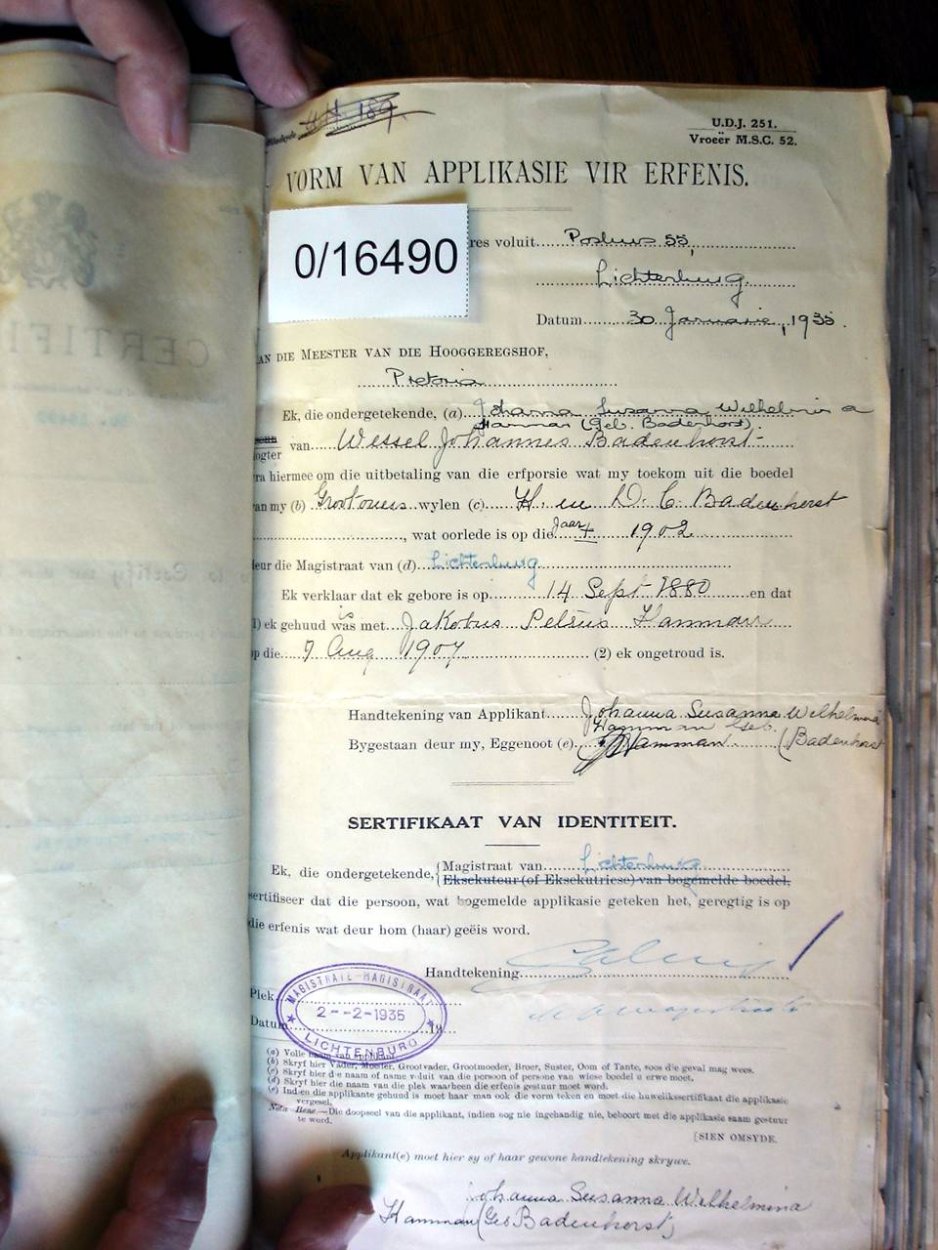 U.D.J. 251.
Vroeër M.S.C. 52.
VORM VAN APPLIKASIE VIR ERFENIS.
0/16490
res voluit Posbus 55,
Lichtenburg
Datum 30 Januarie, 1935.
AN DIE MEESTER VAN DIE HOOGGEREGSHOF,
Pretoria
Ek, die ondergetekende, (a) Johanna Susanna Wilhelmina
Hamman (Geb. Badenhorst).
ogter van Wessel Johannes Badenhorst
ra hiermee om die uitbetaling van die erfporsie wat my toekom uit die boedel
an my (b) Grootouers wylen (c) H. en D. C. Badenhorst
, wat oorlede is op die Jaar 1902
eur die Magistraat van (d) Lichtenburg
Ek verklaar dat ek gebore is op 14 Sept 1880 en dat
1) ek gehuud was is met Jakobus Petrus Hamman
op die 7 Aug 1907 (2) ek ongetroud is.
Handtekening van Applikant Johanna Susanna Wilhelmina
Hamman Geb.
Bygestaan deur my, Eggenoot (e) Hamman (Badenhorst
SERTIFIKAAT VAN IDENTITEIT.
Ek, die ondergetekende, Magistraat van Lichtenburg
Eksekuteur (of Eksekutriese) van bogemelde boedel,
sertifiseer dat die persoon, wat bogemelde applikasie geteken het, geregtig is op
die erfenis wat deur hom (haar) geëis word.
Handtekening
Plek
Datum 19
MAGISTRATE-MAGISTRAAT
2--2-1935
LICHTENBURG
(a) Volle naam van applikant.
(b) Skryf hier Vader, Moeder, Grootvader, Grootmoeder, Broer, Suster, Oom of Tante, soos die geval mag wees.
(c) Skryf hier die naam of name voluit van die persoon of persone van wiese boedel u erwe moet.
(d) Skryf hier die naam van die plek waarheen die erfenis gestuur moet word.
(e) Indien die applikante gehuud is moet haar man ook die vorm teken en moet die huweliksertifikaat die applikasie
vergesel.
Nota Bene.—Die doopseel van die applikant, indien nog nie ingehandig nie, behoort met die applikasie saam gestuur
te word.
[SIEN OMSYDE.
Applikant(e) moet hier sy of haar gewone handtekening skrywe.
Johanna Susanna Wilhelmina
Hamman (Geb Badenhorst)